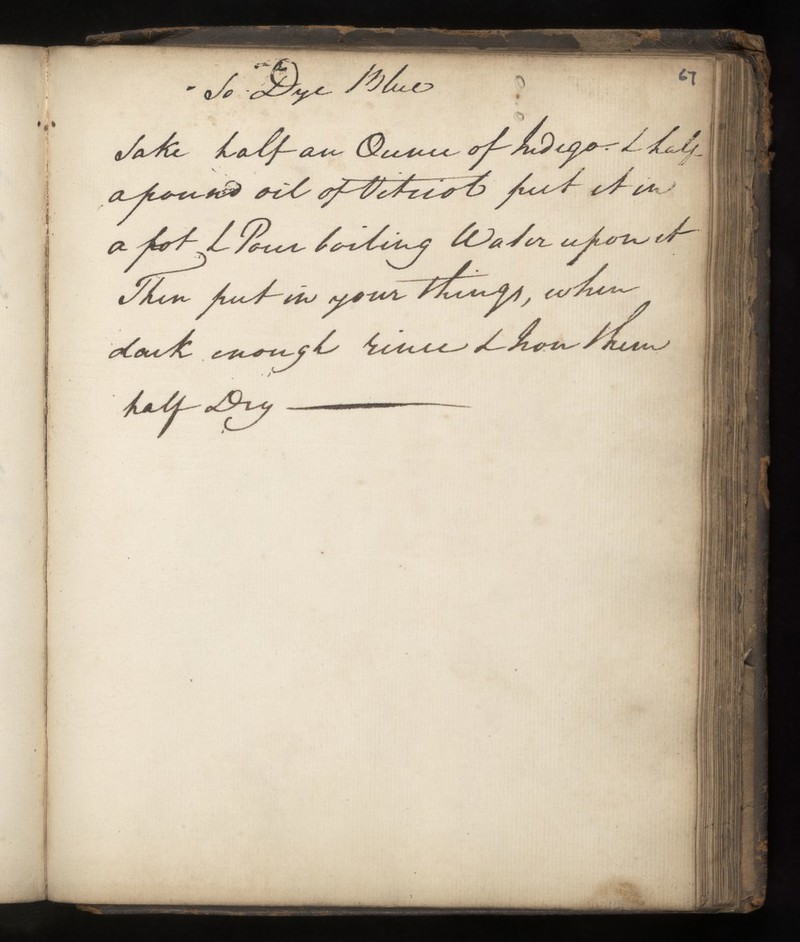 67
To Dye Blue
Take half an Ounce of Indego & half
a pound oil of Vitriol put it in
a pot & Pour boiling Water upon it
Then put in your things, when
dark enough rince & Iron them
half Dry